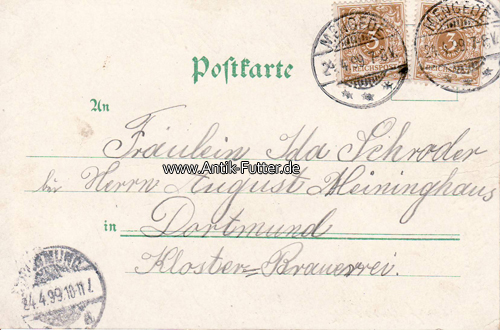 MENGEDE
24.4.99.
3
REICHSPOST
MENGEDE
24.4.99.
3
REICHSPOST
Postkarte
An
Fräulein Ida Schröder
bei Herrn August Meininghaus
www.Antik-Futter.de
in Dortmund
Kloster=Brauerei.
24.4.99.10-11V.